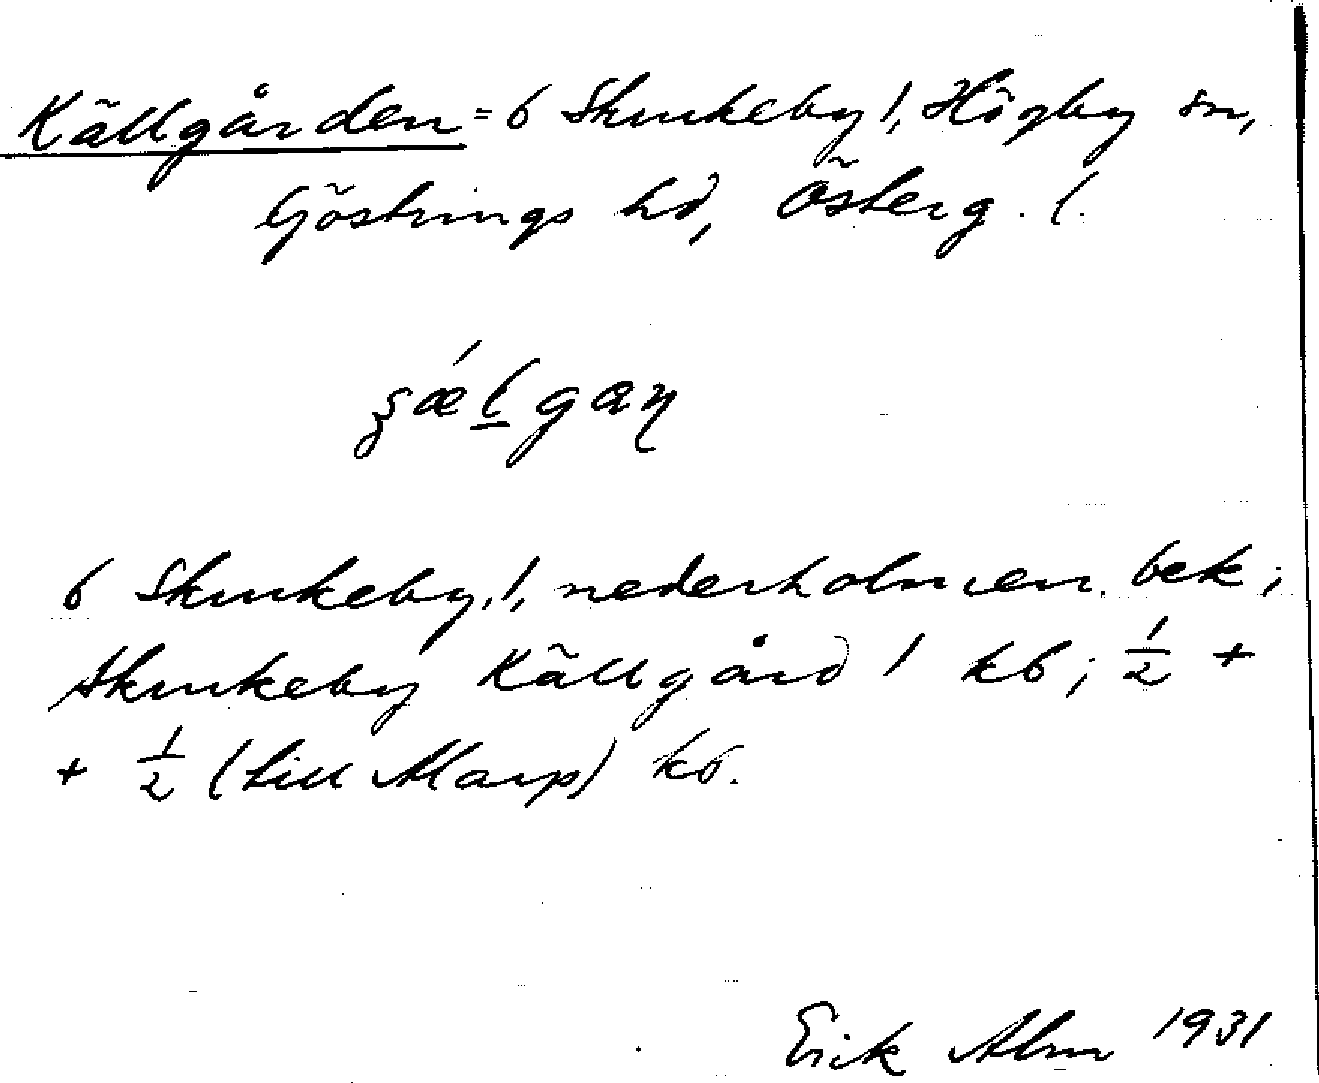 Källgården = 6 Skurkeby 1, Högby sn,
Göstrings hd, Österg. l.
6 Skurkeby, 1, nederholmen. bek;
Skurkeby Källgård 1 kb; 1/2 +
+ 1/2 (till Marp) kb.
Erik Alm 1931